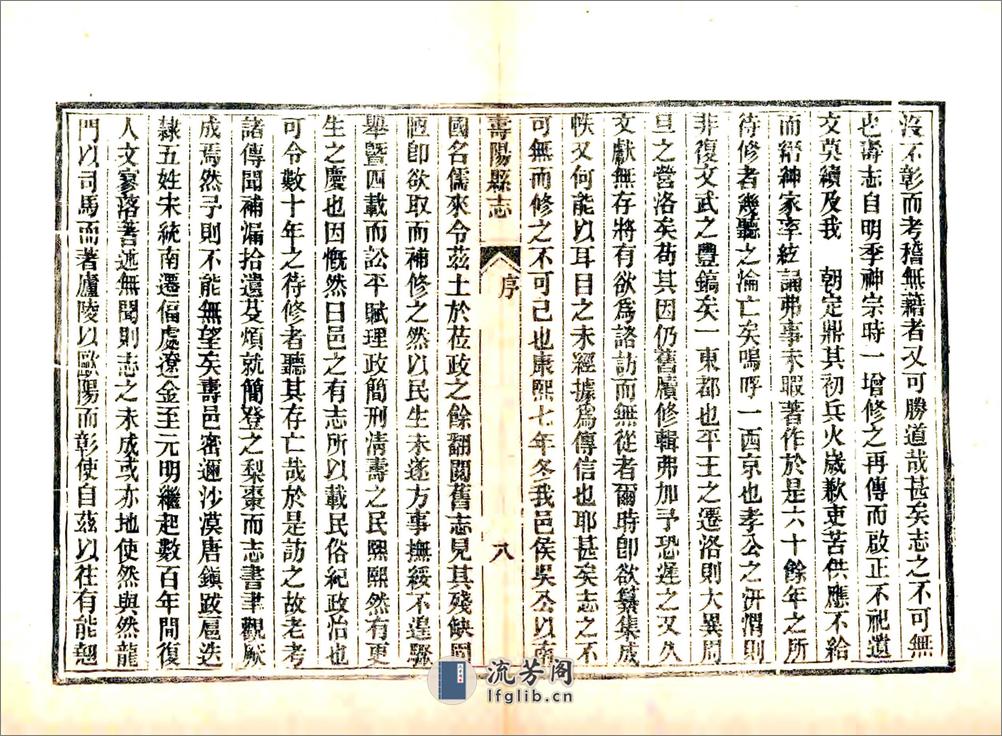 沒不彰而考稽無藉者又可勝道哉甚矣志之不可無
也壽志自明季神宗時一增修之再傳而啟正不祀遺
文莫續及我　朝定鼎其初兵火歲歉吏苦供應不給
而縉紳家率絃誦弗事未暇著作於是六十餘年之所
待修者幾聽之淪亡矣嗚呼一西京也孝公之汧渭則
非復文武之豐鎬矣一東都也平王之遷洛則大異周
旦之營洛矣苟其因仍舊牘修輯弗加予恐遲之又久
文獻無存將有欲爲諮訪而無從者爾時卽欲纂集成
帙又何能以耳目之未經據爲傳信也耶甚矣志之不
可無而修之不可已也康熙七年冬我邑侯吳公以南
壽陽縣志
序
八
國名儒來令茲土於莅政之餘翻閱舊志見其殘缺固
陋卽欲取而補修之然以民生未遂方事撫綏不遑驟
舉暨四載而訟平賦理政簡刑淸壽之民熙熙然有更
生之慶也因慨然曰邑之有志所以載民俗紀政治也
可令數十年之待修者聽其存亡哉於是訪之故老考
諸傳聞補漏拾遺芟煩就簡登之梨棗而志書聿觀厥
成焉然予則不能無望矣壽邑密邇沙漠唐鎭跋扈迭
隸五姓宋統南遷偪處遼金至元明繼起數百年間復
人文寥落著述無聞則志之未成或亦地使然與然龍
門以司馬而著廬陵以歐陽而彰使自茲以往有能翹
流芳阁
lfglib.cn